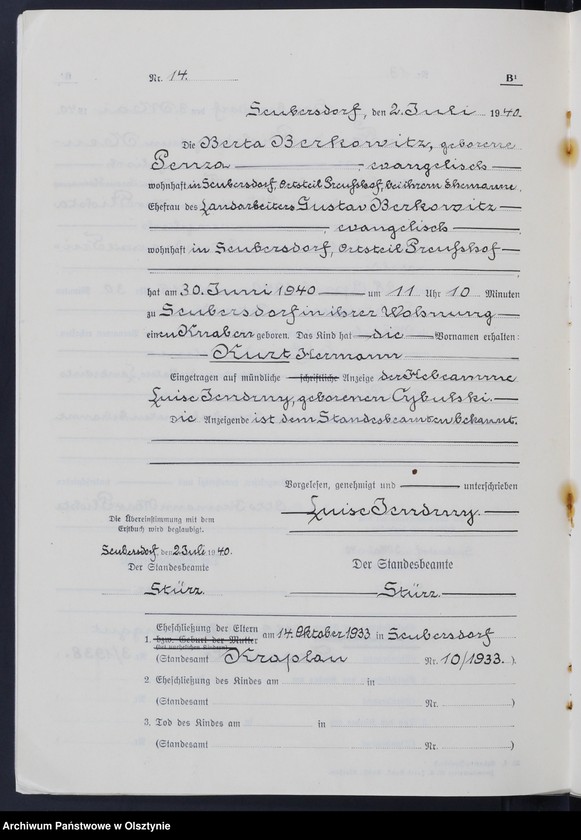 Nr. 14. B¹
Seubersdorf, den 2. Juli 1940.
Die Berta Berkowitz, geborene
Penza — evangelisch —
wohnhaft in Seubersdorf, Ortsteil Preußhof, bei ihrem Ehemanne,
Ehefrau des Landarbeiters Gustav Berkowitz —
— evangelisch —
wohnhaft in Seubersdorf, Ortsteil Preußhof —
hat am 30. Juni 1940 — um 11 Uhr 10 Minuten
zu Seubersdorf in ihrer Wohnung —
einen Knaben geboren. Das Kind hat — die — Vornamen erhalten:
— Kurt Hermann —
Eingetragen auf mündliche — schriftliche — Anzeige der Hebamme
Luise Jendrny, geborenen Cybulski. —
Die Anzeigende ist dem Standesbeamten bekannt.
Vorgelesen, genehmigt und — unterschrieben
Luise Jendrny. —
Die Übereinstimmung mit dem
Erstbuch wird beglaubigt.
Seubersdorf, den 2. Juli 1940.
Der Standesbeamte
Stürz.
Der Standesbeamte
— Stürz. —
1. Eheschließung der Eltern
bzw. Geburt der Mutter am 14. Oktober 1933 in Seubersdorf
(Standesamt Kraplau Nr. 10/1933.)
2. Eheschließung des Kindes am in
(Standesamt Nr. )
3. Tod des Kindes am in
(Standesamt Nr. )
Archiwum Państwowe w Olsztynie